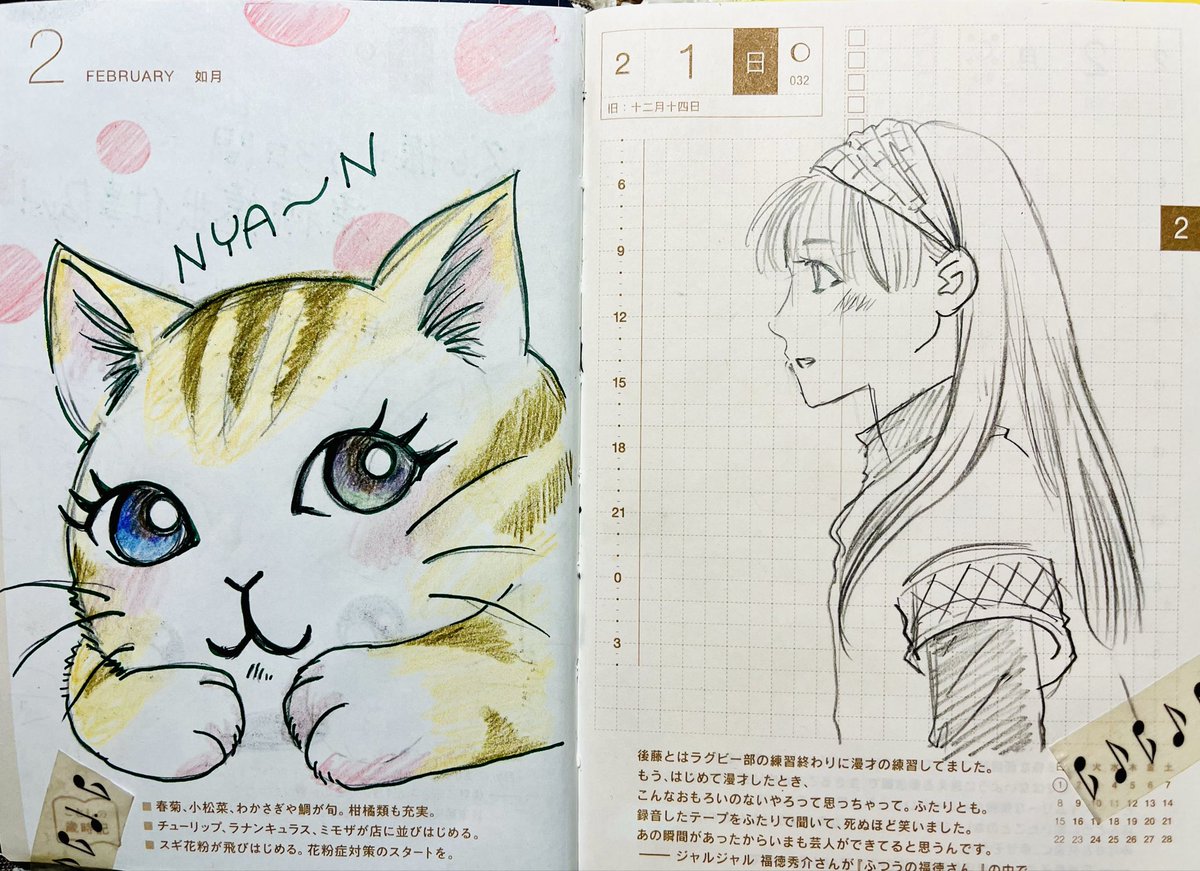 2 FEBRUARY 如月
NYA〜N
■ 春菊、小松菜、わかさぎや鯛が旬。柑橘類も充実。
■ チューリップ、ラナンキュラス、ミモザが店に並びはじめる。
■ スギ花粉が飛びはじめる。花粉症対策のスタートを。
歳時記
2 1 日
032
旧：十二月十四日
2
6
9
12
15
18
21
0
3
後藤とはラグビー部の練習終わりに漫才の練習してました。
もう、はじめて漫才したとき、
こんなおもろいのないやろって思っちゃって。ふたりとも。
録音したテープをふたりで聞いて、死ぬほど笑いました。
あの瞬間があったからいまも芸人ができてると思うんです。
—— ジャルジャル 福徳秀介さんが『ふつうの福徳さん。』の中で
日 火 水 木 金 土
1 4 5 6 7
8 9 10 11 12 13 14
15 16 17 18 19 20 21
22 23 24 25 26 27 28